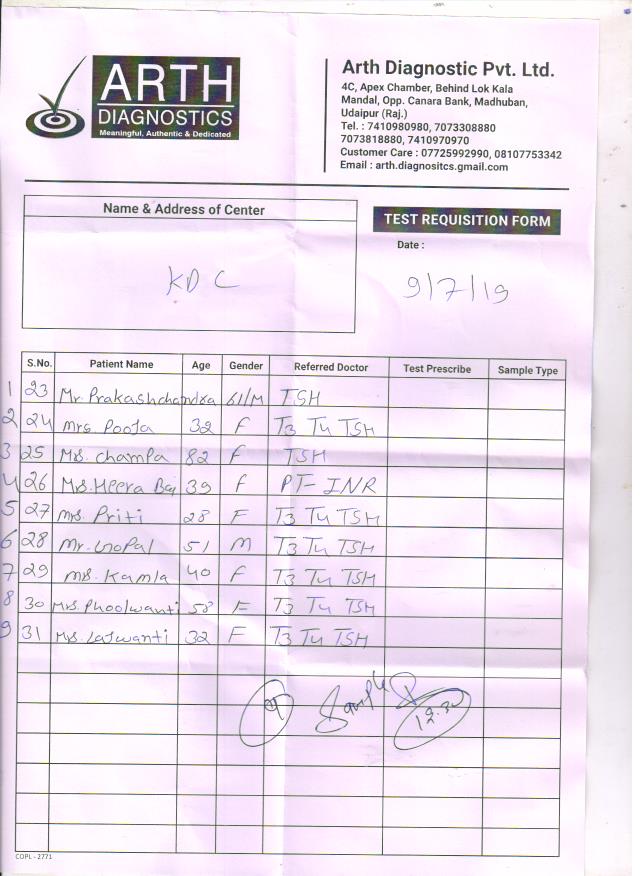 ARTH
DIAGNOSTICS
Meaningful, Authentic & Dedicated
Arth Diagnostic Pvt. Ltd.
4C, Apex Chamber, Behind Lok Kala
Mandal, Opp. Canara Bank, Madhuban,
Udaipur (Raj.)
Tel. : 7410980980, 7073308880
7073818880, 7410970970
Customer Care : 07725992990, 08107753342
Email : arth.diagnositcs.gmail.com
Name & Address of Center
KDC
TEST REQUISITION FORM
Date :
9/7/19
S.No. Patient Name Age Gender Referred Doctor Test Prescribe Sample Type
1 23 Mr. Prakashchandra 61/M TSH
2 24 Mrs Pooja 32 F T3 T4 TSH
3 25 Mrs. Champa 82 F TSH
4 26 Mrs. Heera Bai 39 F PT-INR
5 27 Mrs. Priti 28 F T3 T4 TSH
6 28 Mr. Gopal 51 M T3 T4 TSH
7 29 Mrs. Kamla 40 F T3 T4 TSH
8 30 Mrs. Phoolwanti 58 F T3 T4 TSH
9 31 Mrs. Lajwanti 32 F T3 T4 TSH
Sample
12.30
COPL - 2771